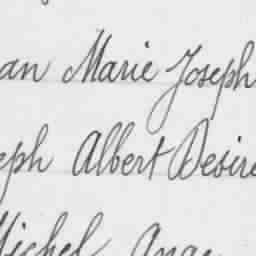 an Marie Joseph
eph Albert Desire
Michel Ange